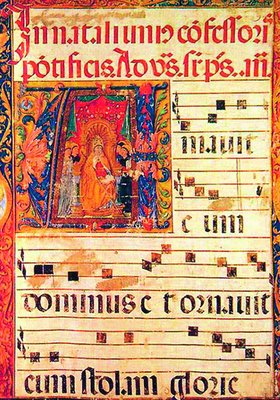 In natali unius cōfessori
pōtificis. Ad vs̄. sr̄. ps̄. an̄
A mauit
eum
dominus et ornauit
eum stolam glorie